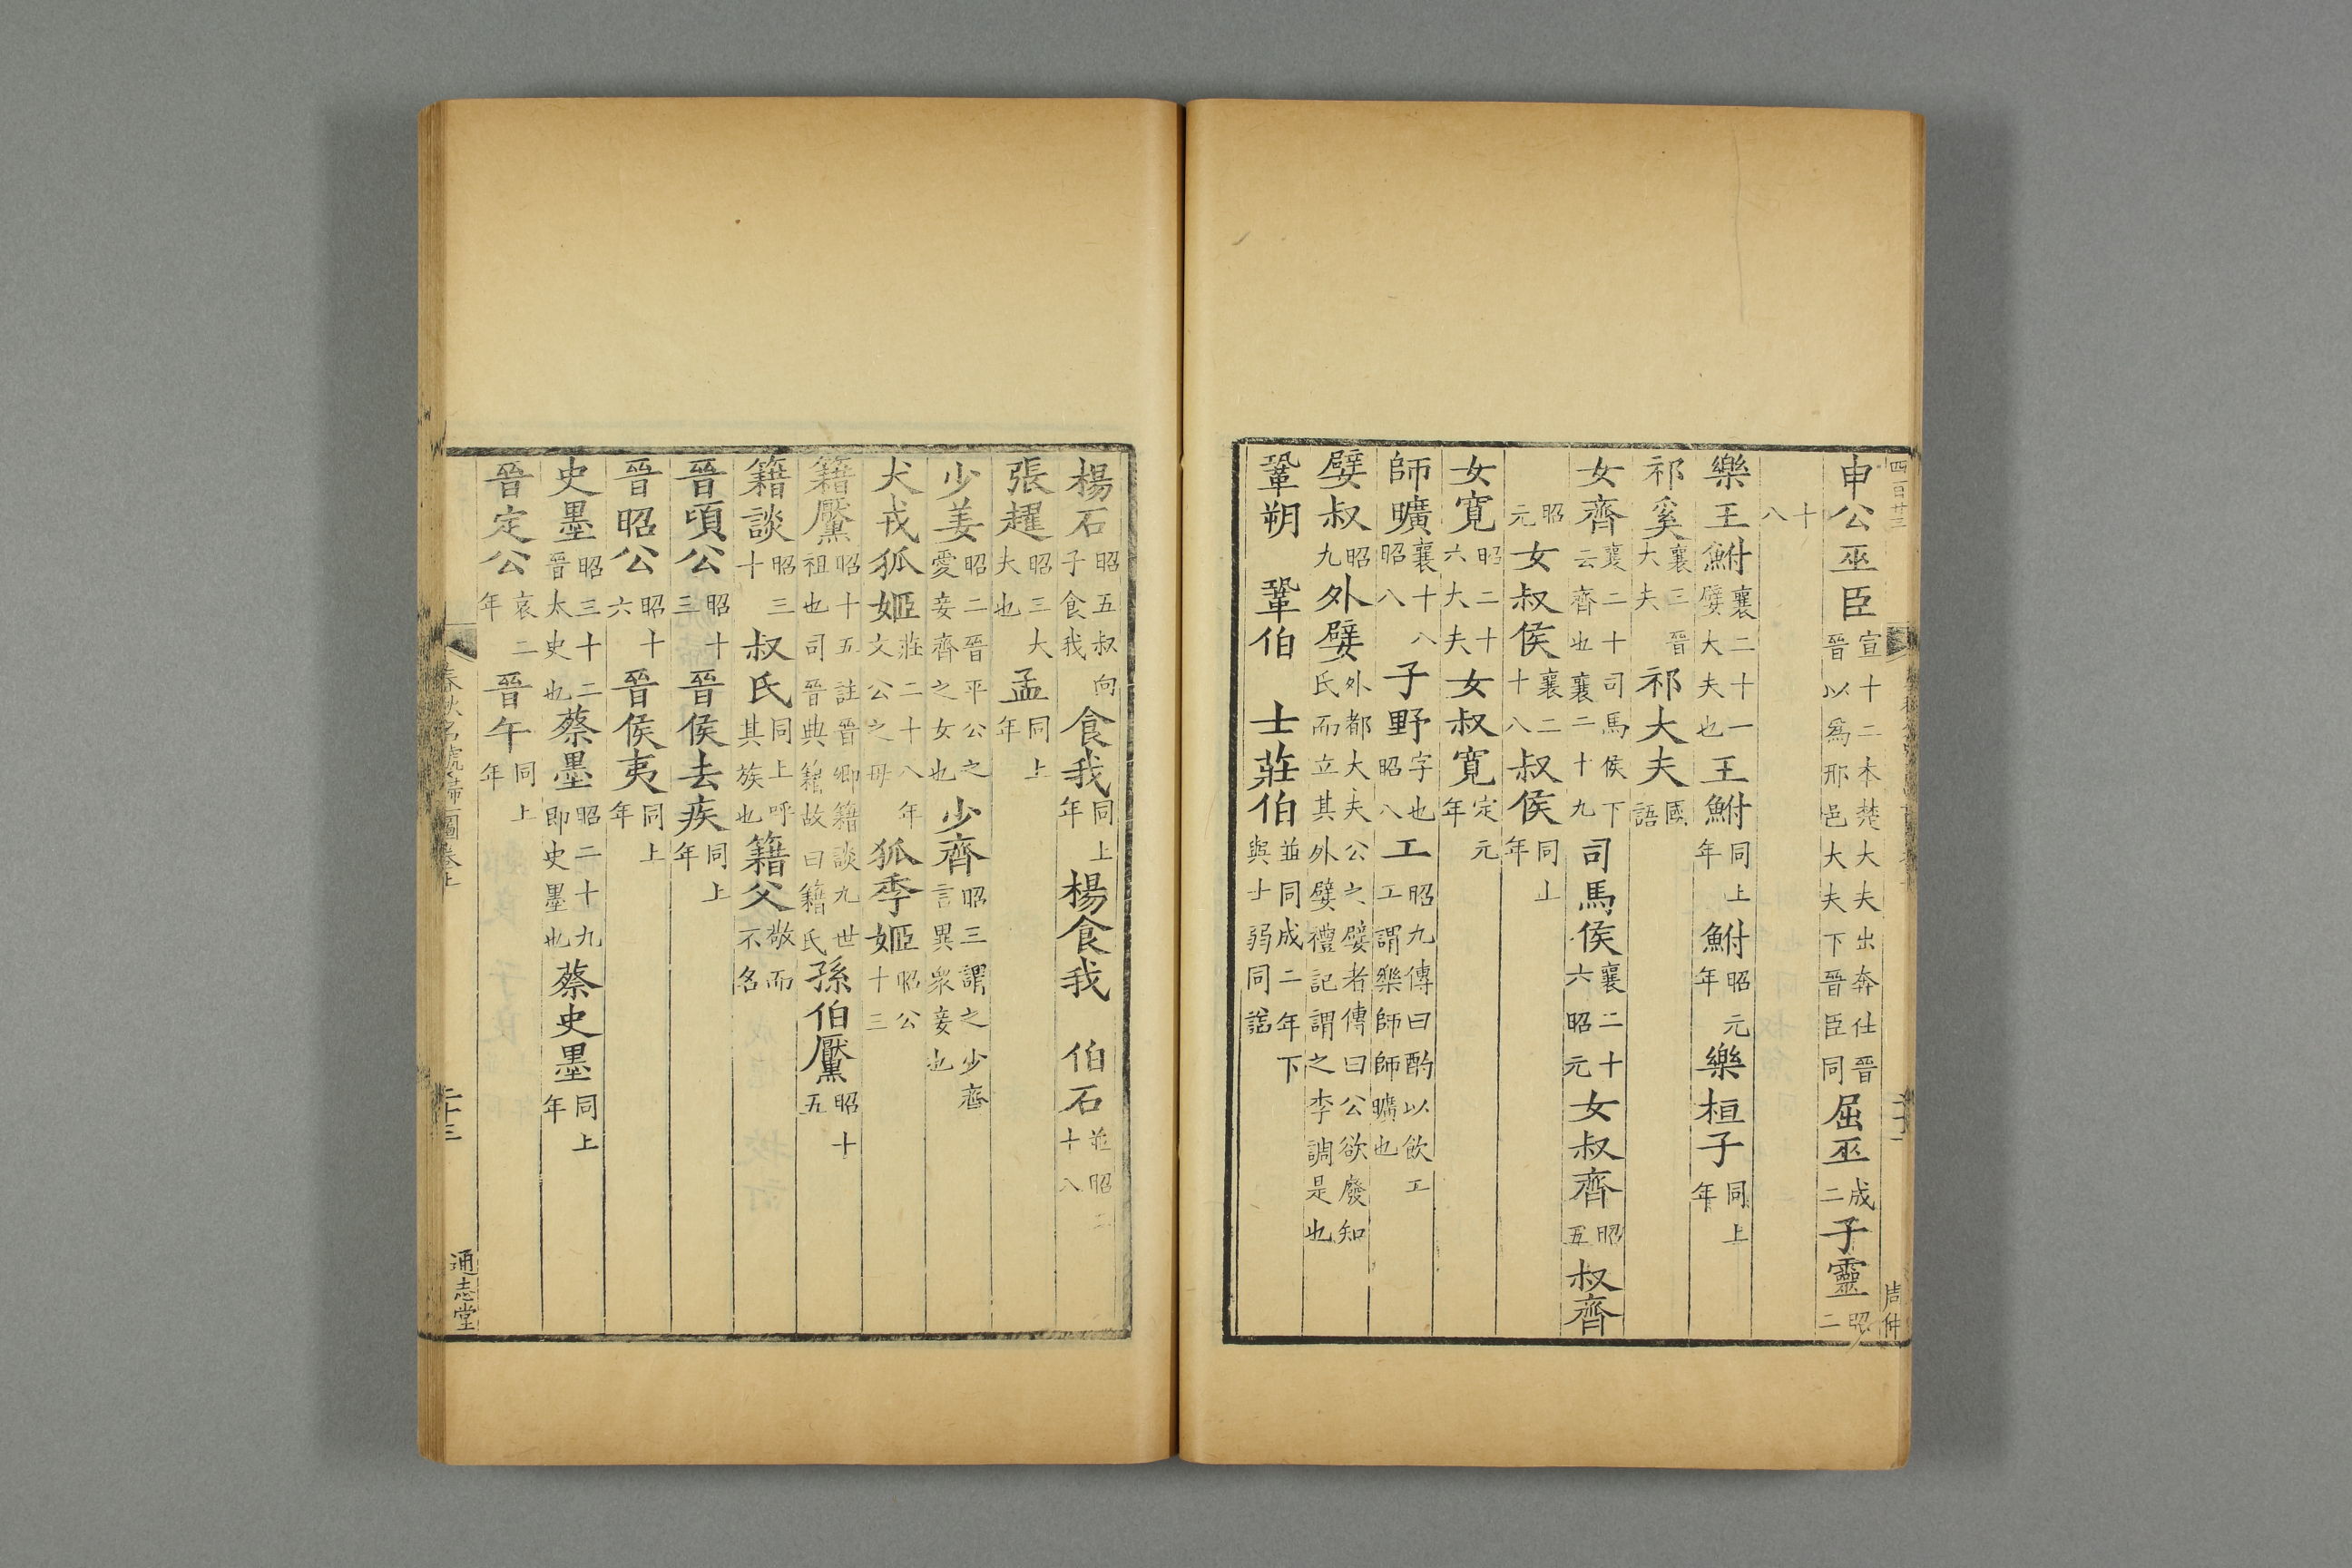 四百廿三
申公巫臣宣十二本楚大夫出奔仕晉晉以爲邢邑大夫下晉臣同屈巫成二子靈昭二
十八
樂王鮒襄二十一嬖大夫也王鮒同上年鮒昭元年樂桓子同上年
祁奚襄三晉大夫祁大夫國語
女齊襄二十司馬侯下云齊也襄二十九司馬侯襄二十六昭元女叔齊昭五叔齊
昭元女叔侯襄二十八叔侯同上年
女寬昭二十六大夫女叔寬定元年
師曠襄十八昭八子野字也昭八工昭九傳曰酌以飲工工謂樂師師曠也
嬖叔昭九外嬖外都大夫公之嬖者傳曰公欲廢知氏而立其外嬖禮記謂之李調是也
鞏朔 鞏伯 士莊伯並同成二年下與士弱同諡
周仲
楊石昭五叔向子食我食我同上年楊食我 伯石並昭二十八
張趯昭三大夫也孟同上年
少姜昭二晉平公之愛妾齊之女也少齊昭三謂之少齊言異衆妾也
犬戎狐姬莊二十八年文公之母狐季姬昭公十三
籍黶昭十五註晉卿籍談九世祖也司晉典籍故曰籍氏孫伯黶昭十五
籍談昭三十叔氏同上呼其族也籍父敬而不名
晉頃公昭十三晉侯去疾同上年
晉昭公昭十六晉侯夷同上年
史墨昭三十二晉太史也蔡墨昭二十九即史墨也蔡史墨同上年
晉定公哀二年晉午同上年
春秋名號歸一圖卷上 二十三 通志堂